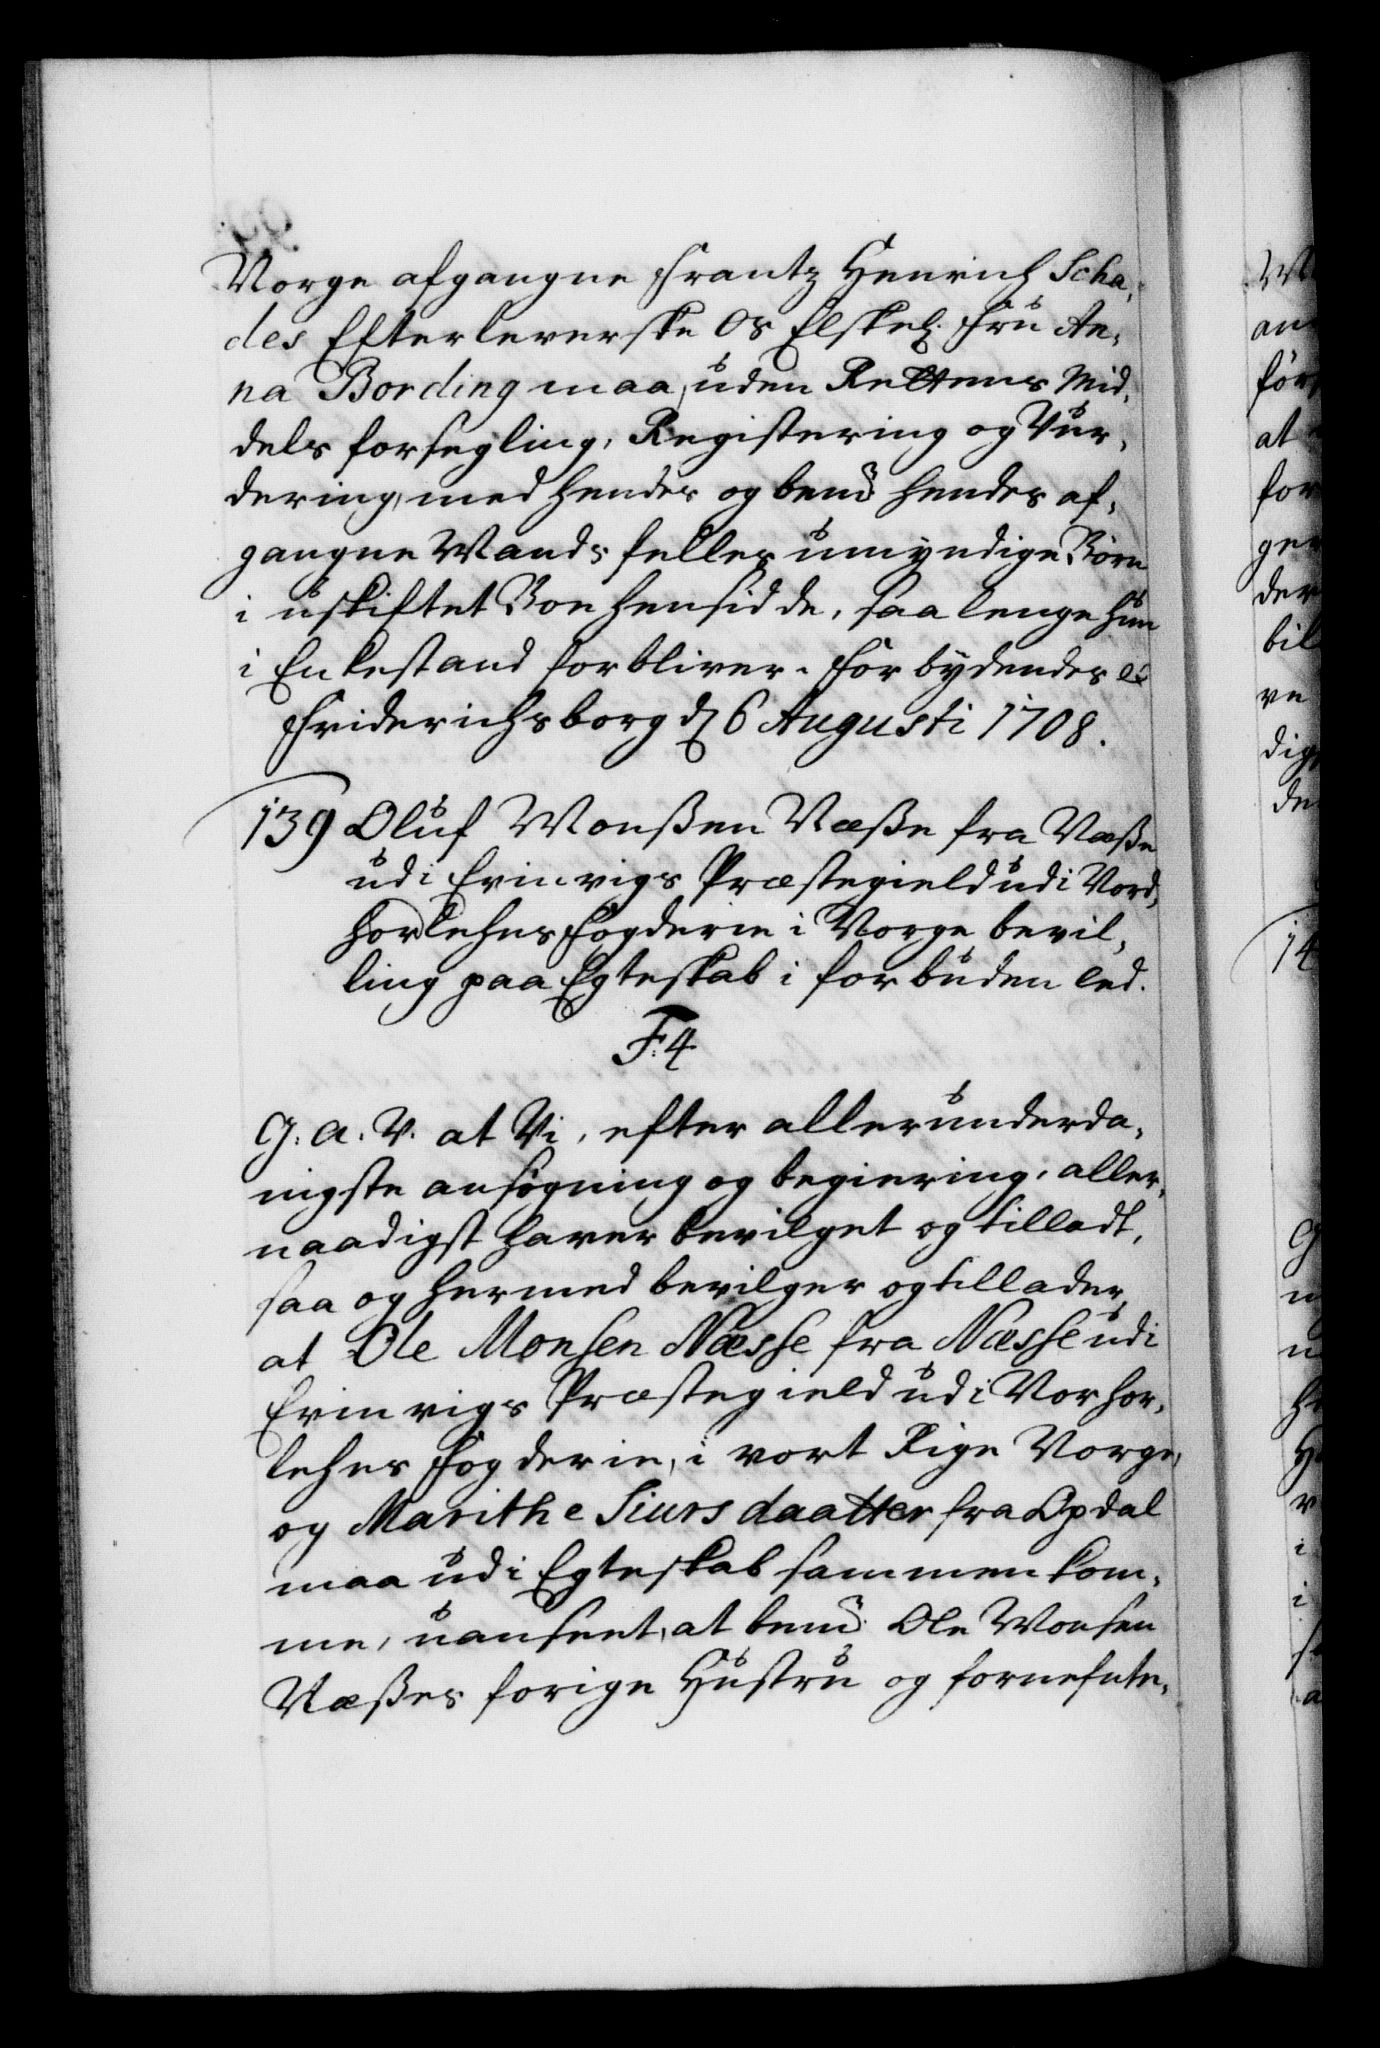 Norge afgangne Frantz Henrich Scha,
des Efterleverske Os Elskel. Fru An,
na Bording maa, uden Rettens Mid,
dels forsegling, Registering og Vur,
dering, med hendes og bemte hendes af,
gangne Mands felles umyndige Børn
i uskiftet Boe hensidde, saa lenge hun
i Enkestand forbliver. Forbydendes &c
Friderichsborg d 6 Augusti 1708.
139 Oluf Monßen Næße fra Næße
udi Evinvigs Præstegield udi Nord,
horlehns Fogderie i Norge bevil,
ling paa Egteskab i forbuden led.
F: 4
G. A. V. at Vi, efter allerunderda,
nigste ansøgning og begiering, aller,
naadigst haver bevilget og tilladt,
saa og hermed bevilger og tillader,
at Ole Monsen Næsse fra Næsse udi
Evinvigs Præstegield udi Norhor,
lehns Fogderie, i vort Rige Norge,
og Marithe Siursdaatter fra Opdal
maa udi Egteskab sammenkom,
me, uanseet, at bemte Ole Monsen
Næßes forige Hustru og fornefnte,